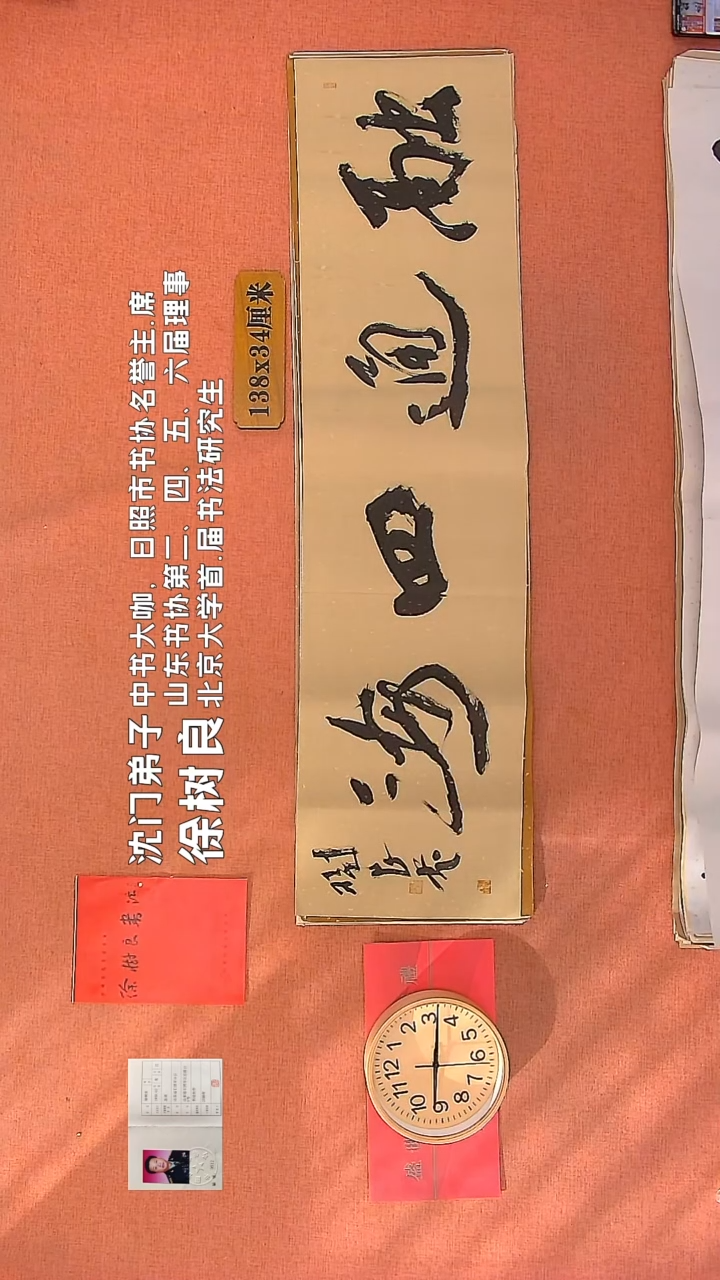 沈门弟子
徐树良
中书大咖,日照市书协名誉主.席
山东书协第三、四、五、六届理事
北京大学首.届书法研究生
138x34厘米
融通四海
树良书
徐树良书法。
12
1
2
3
4
5
6
7
8
9
10
11